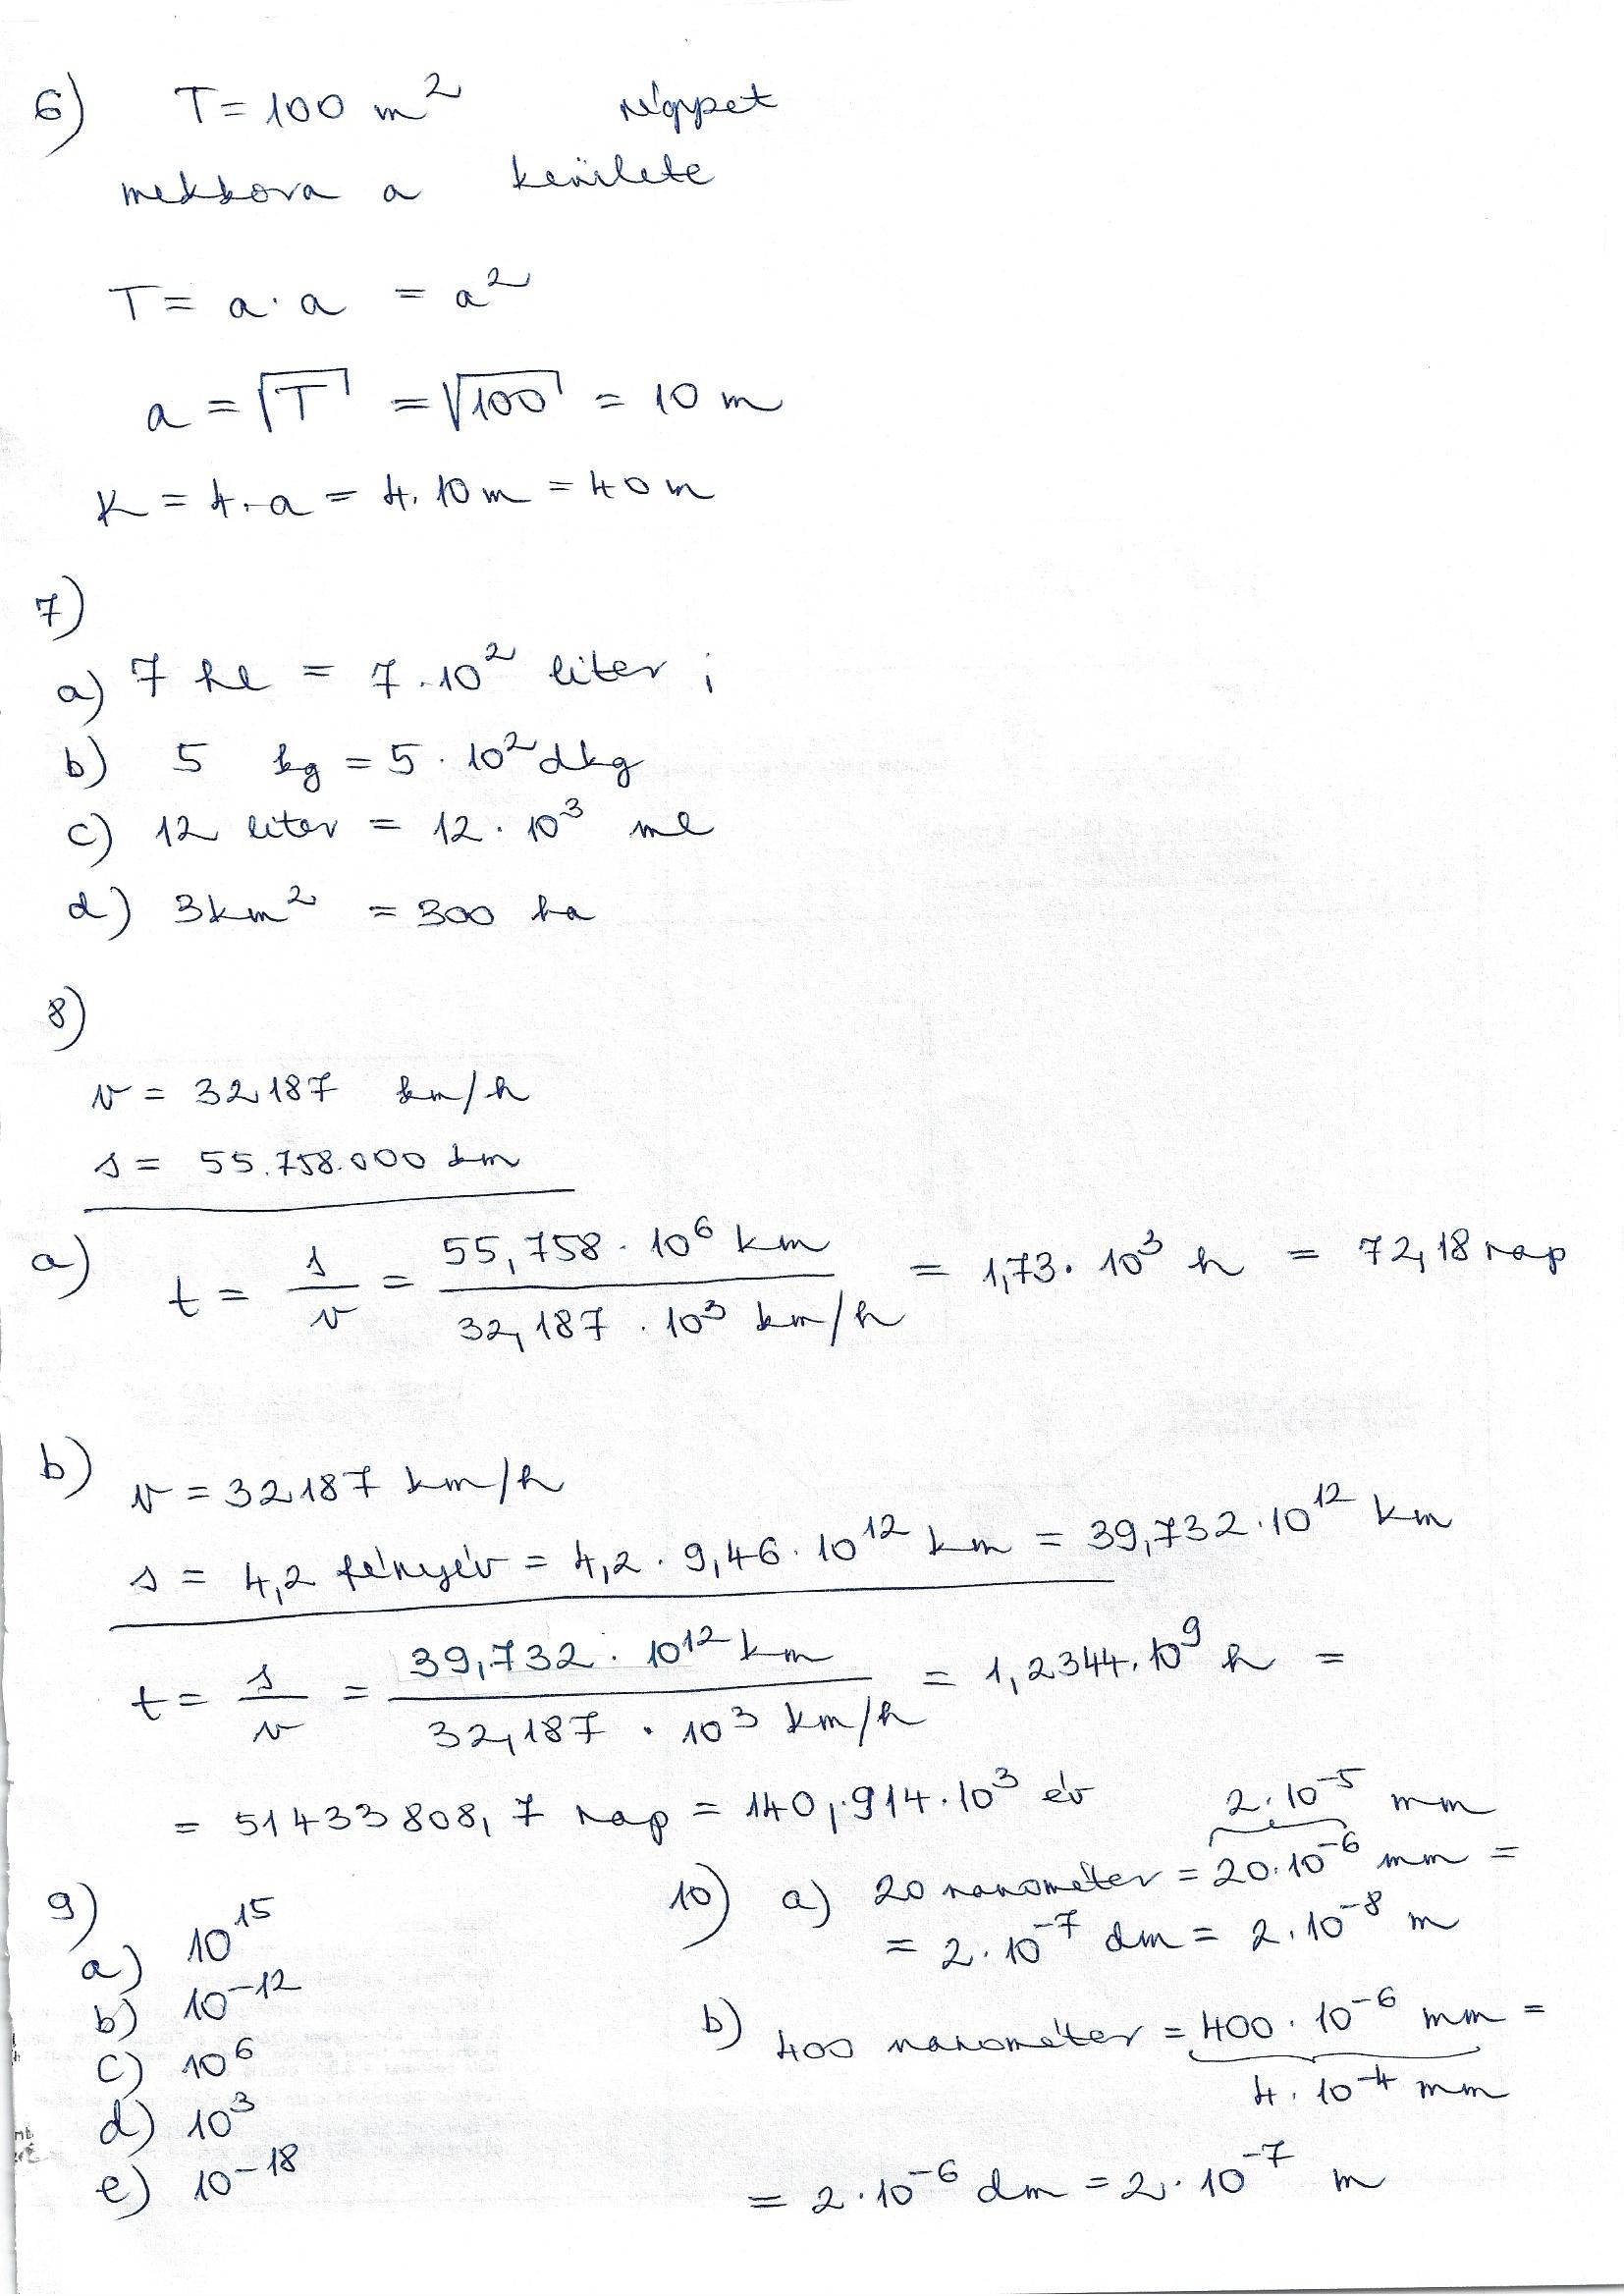 6) T = 100 m² négyzet
mekkora a kerülete
T = a · a = a²
a = √T = √100 = 10 m
K = 4 · a = 4 · 10 m = 40 m
7)
a) 7 hl = 7 · 10² liter ;
b) 5 kg = 5 · 10² dkg
c) 12 liter = 12 · 10³ ml
d) 3 km² = 300 ha
8)
v = 32187 km/h
s = 55.758.000 km
a) t = s/v = 55,758 · 10⁶ km / 32,187 · 10³ km/h = 1,73 · 10³ h = 72,18 nap
b) v = 32187 km/h
s = 4,2 fényév = 4,2 · 9,46 · 10¹² km = 39,732 · 10¹² km
t = s/v = 39,732 · 10¹² km / 32,187 · 10³ km/h = 1,2344 · 10⁹ h =
= 51433808,7 nap = 140,914 · 10³ év
9)
a) 10¹⁵
b) 10⁻¹²
c) 10⁶
d) 10³
e) 10⁻¹⁸
2 · 10⁻⁵ mm
10) a) 20 nanométer = 20 · 10⁻⁶ mm =
= 2 · 10⁻⁷ dm = 2 · 10⁻⁸ m
b) 400 nanométer = 400 · 10⁻⁶ mm =
4 · 10⁻⁴ mm
= 2 · 10⁻⁶ dm = 2 · 10⁻⁷ m